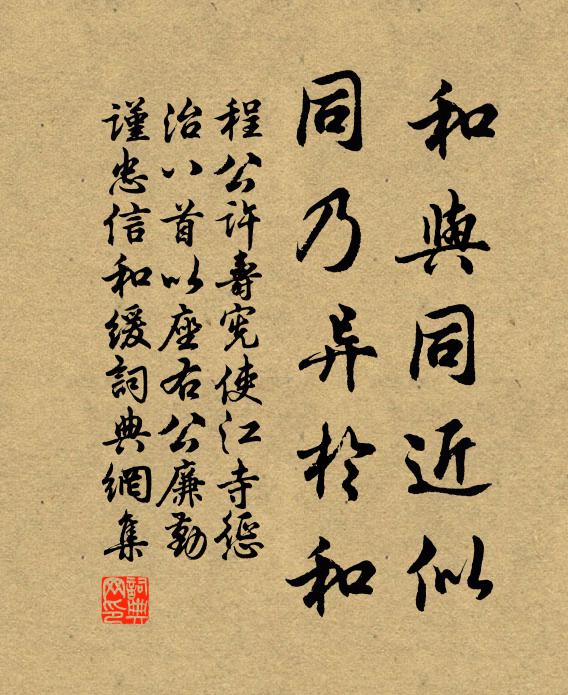 和與同近似
同乃異於和
程公許壽憲使江寺愆
治八首以座右公廉勤
謹忠信和緩詞典網集